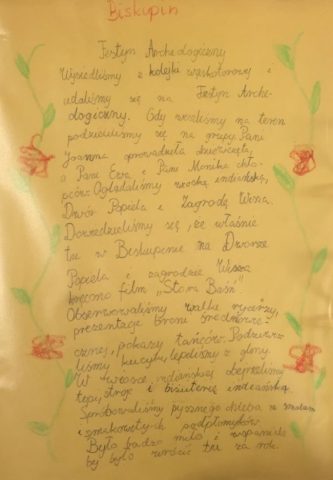 Biskupin
Festyn Archeologiczny
Wysiedliśmy z kolejki wąskotorowej i
udaliśmy się na Festyn Arche-
ologiczny. Gdy weszliśmy na teren
podzieliliśmy się na grupy. Pani
Joanna oprowadzała dziewczęta,
a Pani Ewa i Pani Monika chło-
pców. Oglądaliśmy wioskę indiańską,
Dwór Popiela i Zagrodę Wisza.
Dowiedzieliśmy się, że właśnie
tu w Biskupinie na Dworze
Popiela i zagrodzie Wisza
kręcono film "Stara Baśń".
Obserwowaliśmy walkę rycerzy,
prezentację broni średniowie-
cznej, pokazy tańców. Podziwia-
liśmy kucyki, lepiliśmy z gliny.
W wiosce indiańskiej obejrzeliśmy
tepi, stroje i biżuterię indiańską.
Spróbowaliśmy pysznego chleba ze smalcem
i smakowitych podpłomyków.
Było bardzo miło i wspaniale
by było wrócić tu za rok.